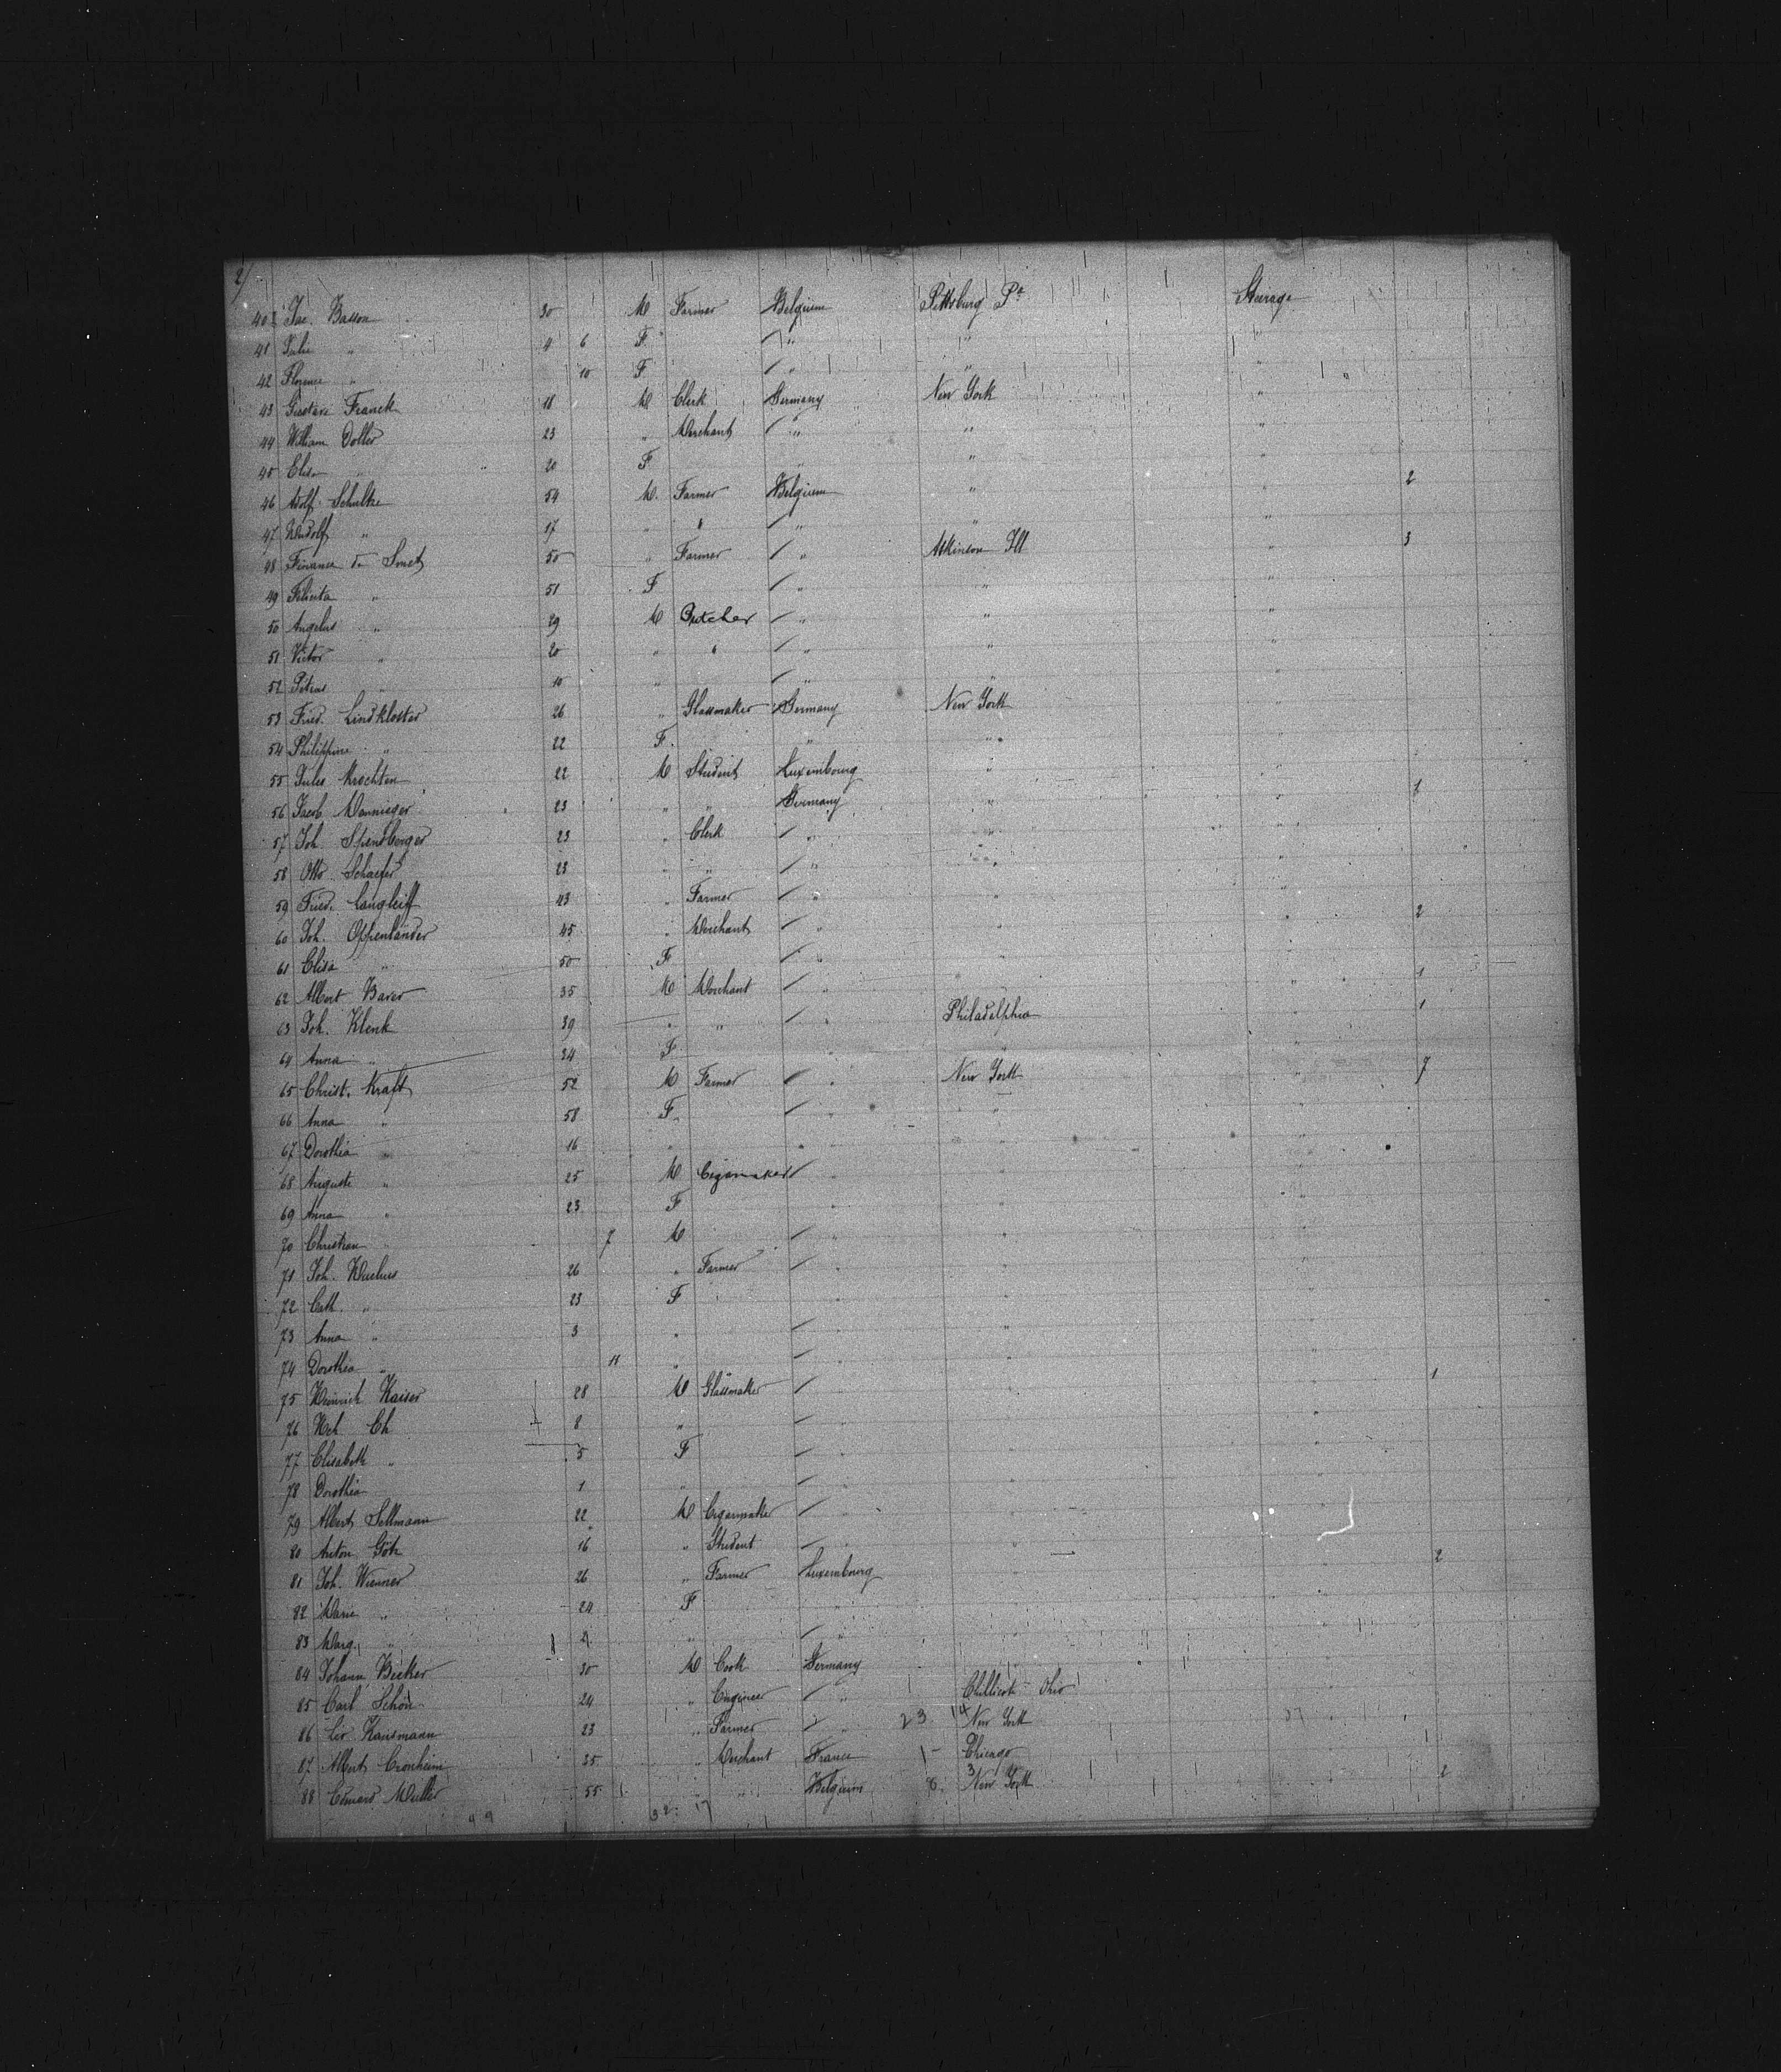 2/
40 Jac. Basson 30 M Farmer Belgium Pittsburg Pa Steerage
41 Julie " 4 6 F " " "
42 Florence " 10 F " " "
43 Gustave Franck 18 M Clerk Germany New York "
44 William Doller 23 " Merchant " " "
45 Elise " 20 F " " "
46 Adolf Schultze 54 M. Farmer Belgium " " 2
47 Rudolf " 17 " " " " "
48 de Smet 50 " Farmer " Atkinson Ill " 3
49 " 51 F " " "
50 Angelus " 29 M Butcher " " "
51 Victor " 20 " " " " "
52 Petrus " 10 " " " "
53 Fried. Lindkloster 26 " Glassmaker Germany New York "
54 Philippine " 22 F " " "
55 Jules Krechten 22 M Student Luxembourg " "
56 Jacob 23 " " Germany " " 1
57 Joh. 23 " Clerk " " "
58 Otto Schaefer 23 " " " " "
59 Fried. Langleiff 43 " Farmer " " "
60 Joh. Oppenländer 45 " Merchant " " " 2
61 Elisa " 50 F " " "
62 Albert Baver 35 M Merchant " " " 1
63 Joh. Klenk 39 " " " Philadelphia " 1
64 Anna " 34 F " " "
65 Christ. Kraft 52 M Farmer " New York " 7
66 Anna " 58 F " " "
67 Dorothea " 16 " " " "
68 Auguste " 25 M Cigarmaker " " "
69 Anna " 23 F " " "
70 Christian " 7 M " " "
71 Joh. 26 " Farmer " " "
72 Cath. " 23 F " " "
73 Anna " 3 " " " "
74 Dorothea " 11 " " " "
75 Heinrich Kaiser 28 M Glassmaker " " " 1
76 Hch Ch 8 " " " "
77 Elisabeth " 5 F " " "
78 Dorothea 1 " " " "
79 Albert Sellmann 22 M Cigarmaker " " "
80 Anton Götz 16 " Student " " "
81 Joh. Wienner 26 " Farmer Luxembourg " " 2
82 Marie " 24 F " " "
83 Marg. " " " " "
84 Johann Becker 30 M Cook Germany " "
85 Carl Schön 24 " Engineer " Chillicot Ohio "
86 Kausmann 23 " Farmer " 23 14 New York
87 Albert Cronheim 35 " Merchant France 1 - Chicago
88 Edward Muller 55 " " Belgium 8. 3 New York 2
49 32 17